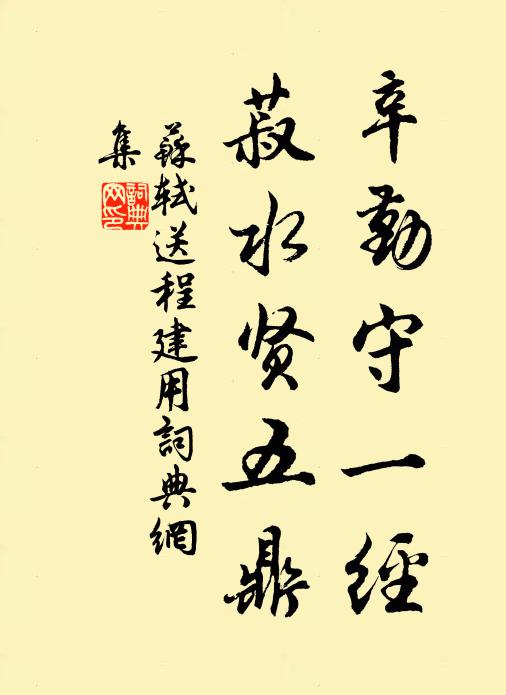 辛勤守一經
菽水贤五鼎
蘇軾送程建用詞典網
集
詞典网印